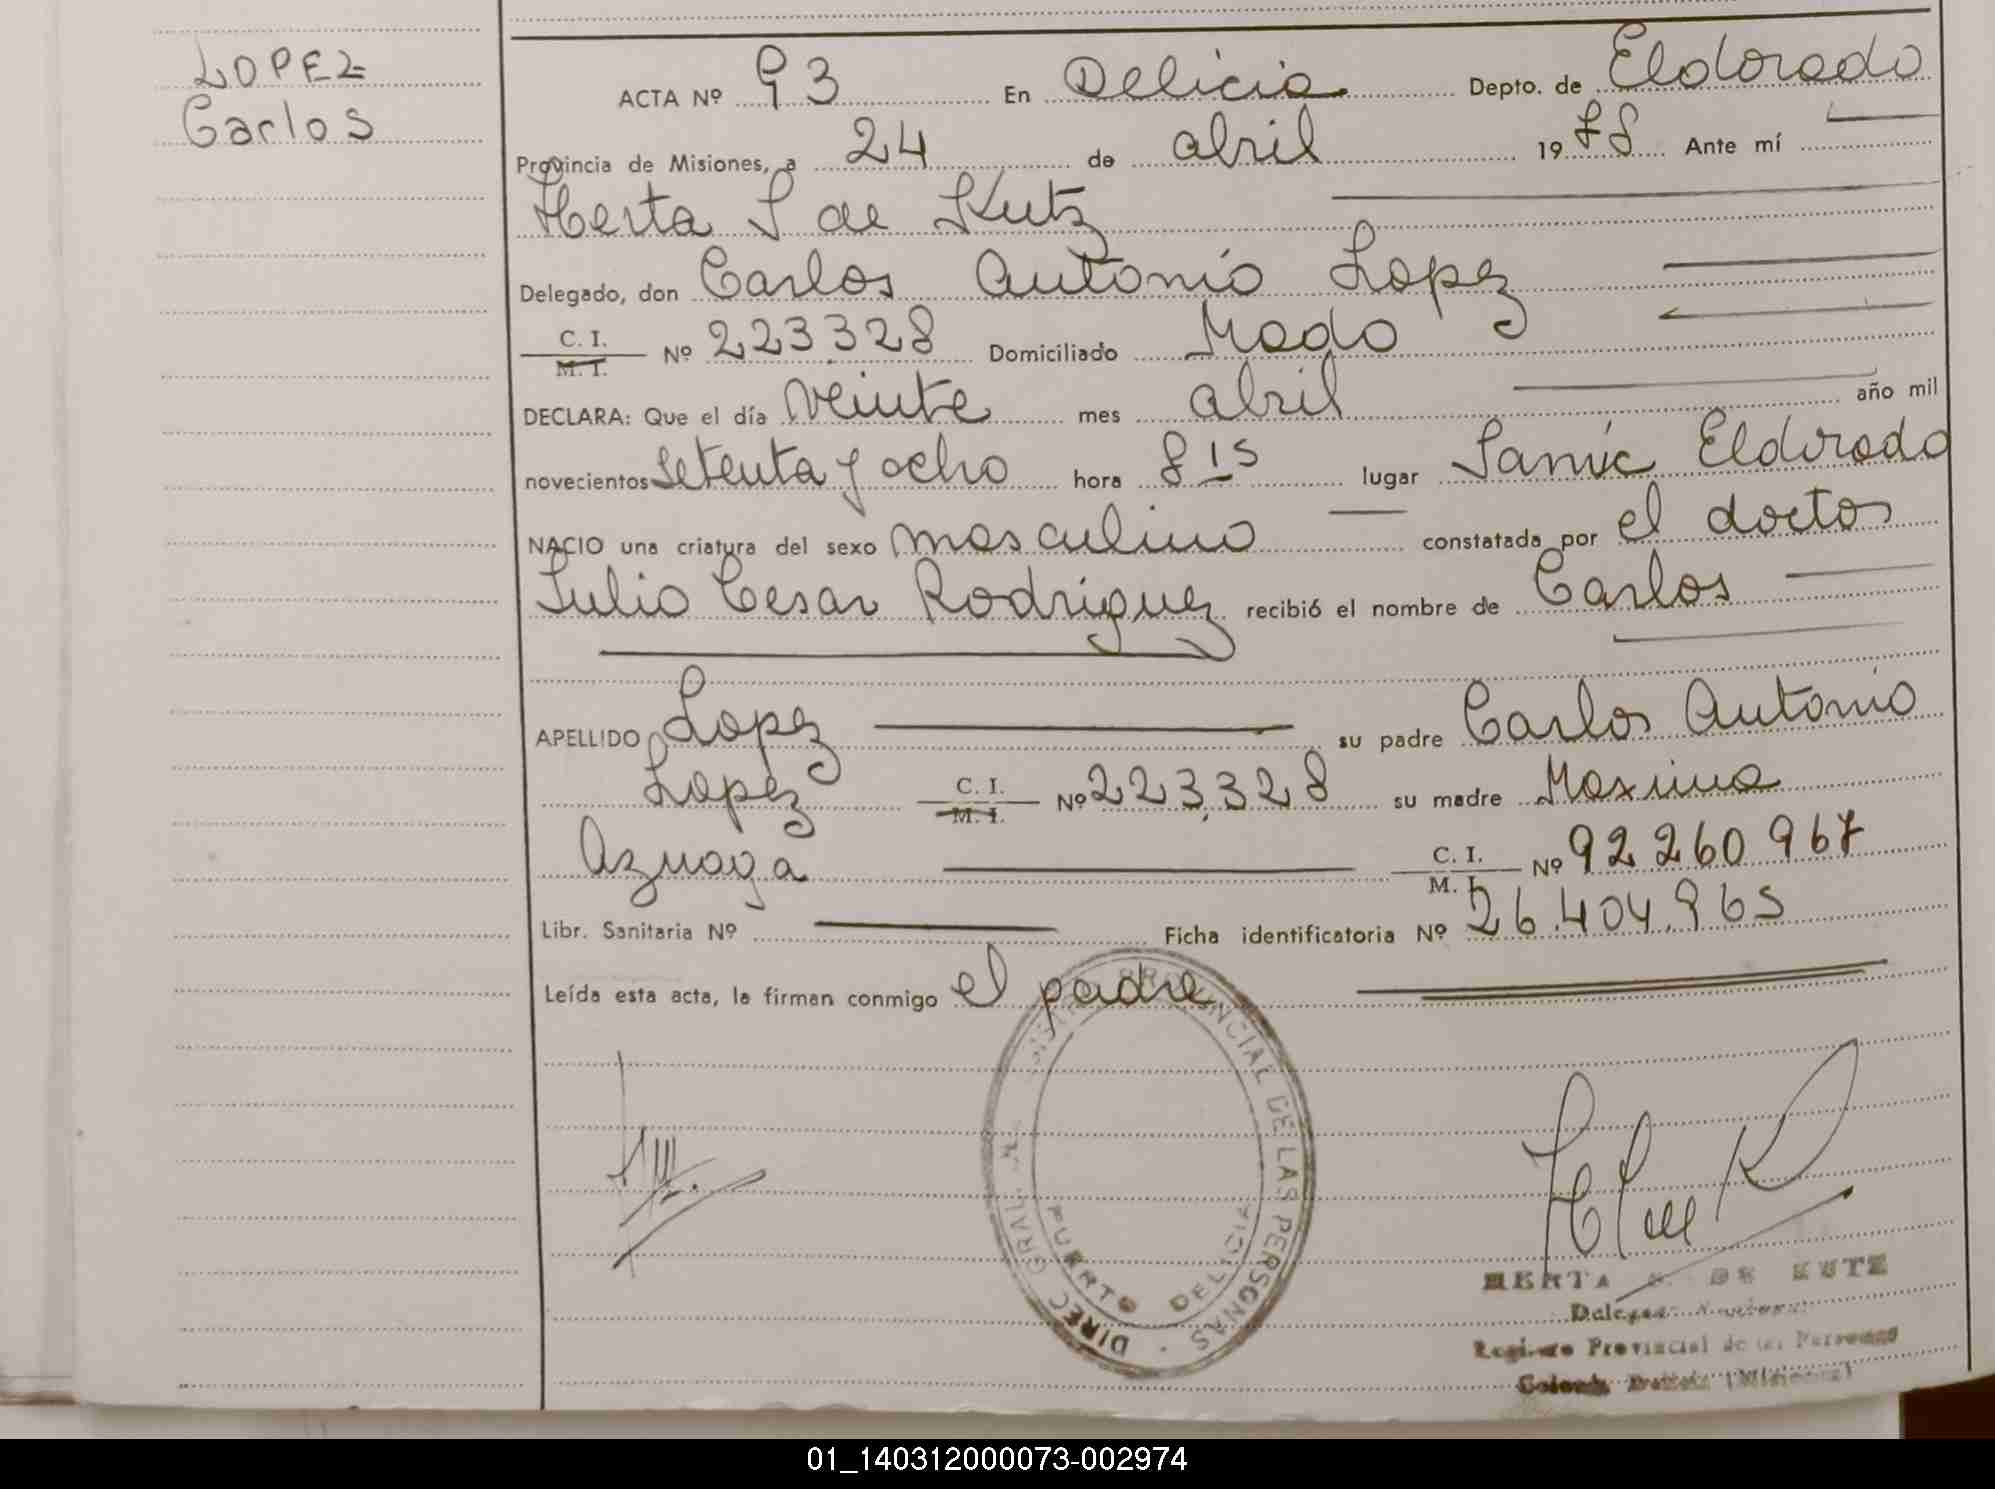 LOPEZ
Carlos
ACTA Nº 93 En Delicia Depto. de Eldorado
Provincia de Misiones, a 24 de abril 1978 Ante mí
Herta S de Kutz
Delegado, don Carlos Antonio Lopez
C. I.
M. I. Nº 223.328 Domiciliado Mado
DECLARA: Que el día veinte mes abril año mil
novecientos setenta y ocho hora 8 15 lugar Samic Eldorado
NACIO una criatura del sexo masculino constatada por el doctor
Julio Cesar Rodriguez recibió el nombre de Carlos
APELLIDO Lopez su padre Carlos Antonio
Lopez C. I. M. I. Nº 223.328 su madre Maxima
Aznaga C. I. M. I. Nº 92 260 967
Libr. Sanitaria Nº Ficha identificatoria Nº 26.404.965
Leída esta acta, la firman conmigo el padre
DIREC. GRAL. PROVINCIAL DE LAS PERSONAS
PUERTO DELICIA
HERTA S. DE KUTZ
Registro Provincial de las Personas
Colonia Delicia (Misiones)
01_140312000073-002974